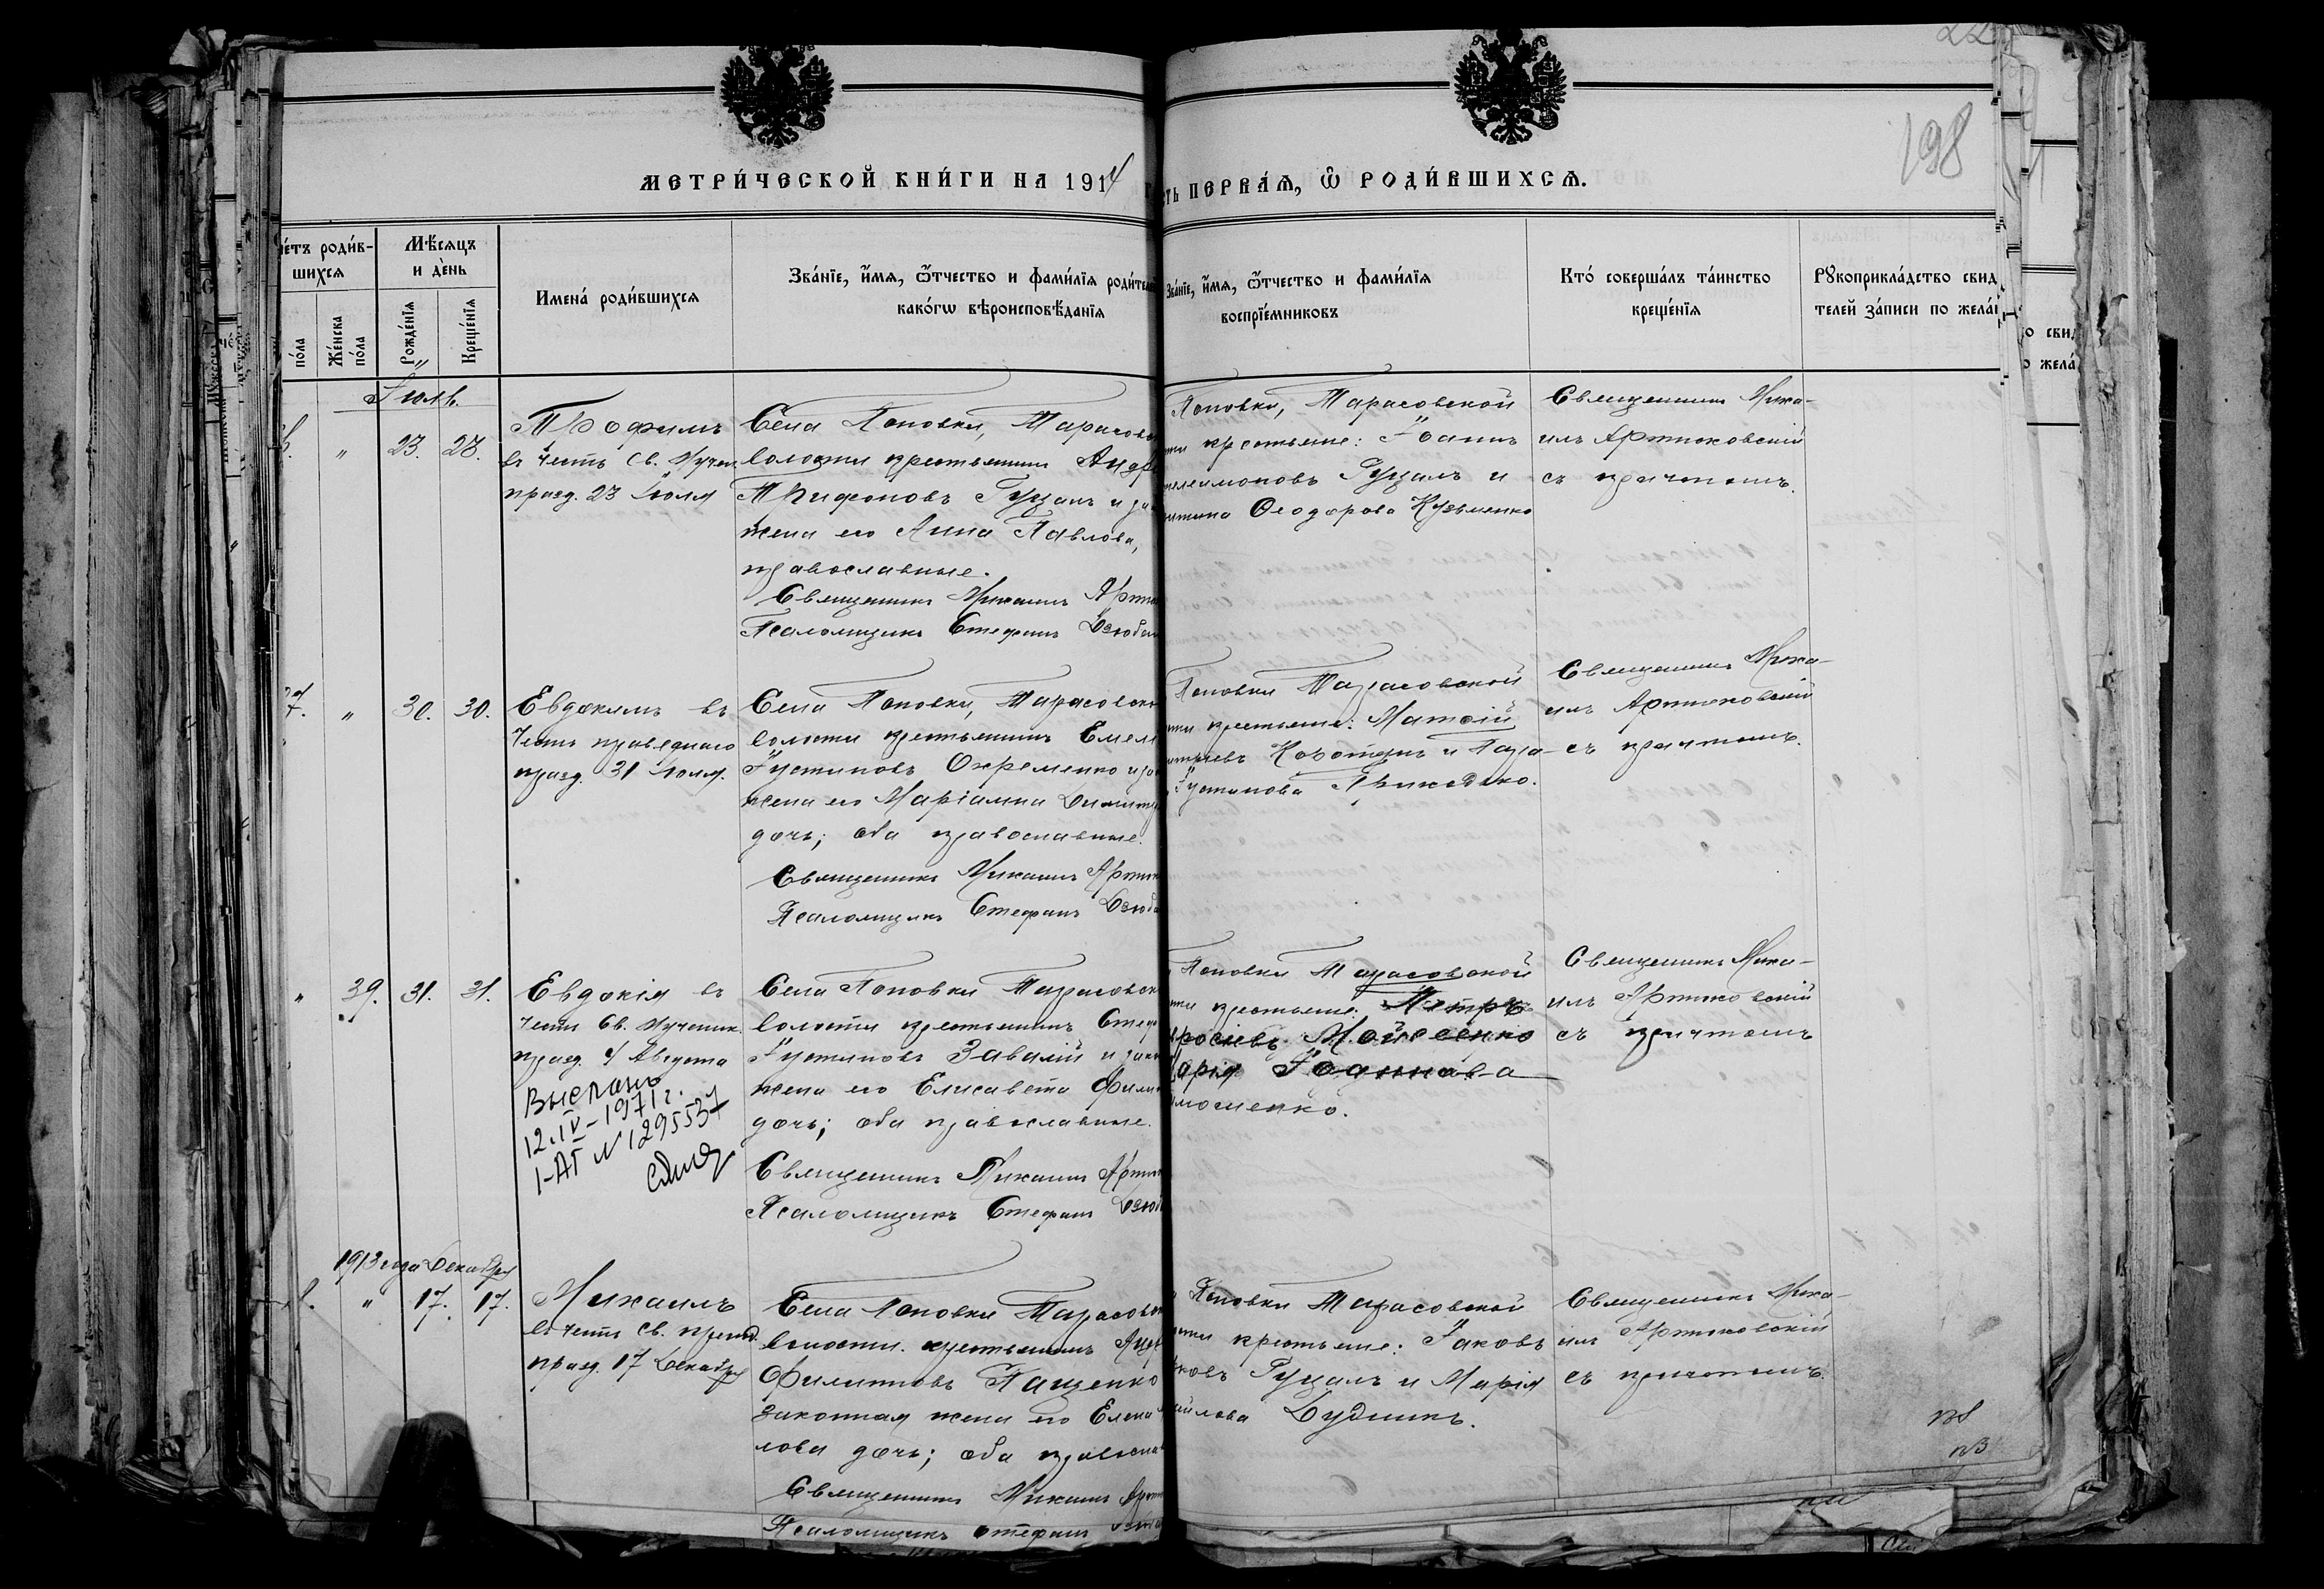 198
МЕТРИ́ЧЕСКОЙ КНИ́ГИ НА 1914
СТЬ ПЕРВАѦ, Ѿ РОДИ́ВШИХСѦ.
е́тъ роди́в-
шихсѧ
Мѣ́сѧцъ
и де́нь
по́ла
Же́нска по́ла
Рожде́нїѧ
Креще́нїѧ
Имена́ роди́вшихсѧ
Зва́нїе, и́мѧ, ѻ́тчество и фами́лїѧ родител
како́гѡ вѣроисповѣ́данїѧ
Зва́нїе, и́мѧ, ѻ́тчество и фами́лїѧ
воспрїе́мниковъ
Кто́ соверша́лъ та́инство
креще́нїѧ
Рꙋкоприкла́дство свид
телей за́писи по жела́
Іюль.
" 23. 23.
Трофимъ
въ честь Св. Мучен.
празд. 23 Іюля
Села Поповки, Тарасовс
волости крестьянинъ Андр
Трифоновъ Гуцалъ и зак
жена его Анна Павлова,
православные.
Священникъ Михаилъ Артю
Псаломщикъ Стефанъ Дзюба
Поповки, Тарасовской
сти крестьяне: Іоаннъ
телеимоновъ Гуцалъ и
Ѳеодорова Кузьменко
Священникъ Миха-
илъ Артюховскій
съ причтомъ.
37. " 30. 30.
Евдокимъ въ
честь праведнаго
празд. 31 Іюля.
Села Поповки, Тарасовско
волости крестьянинъ Емел
Іустиновъ Охременко и за
жена его Маріамна Димитр
дочь; оба православные.
Священникъ Михаилъ Артю
Псаломщикъ Стефанъ Дзюба
Поповки Тарасовской
сти крестьяне: Матѳій
Коротунъ и Пара-
Іустинова Приходько.
Священникъ Миха-
илъ Артюховскій
съ причтомъ.
" 39. 31. 31.
Евдокія въ
честь Св. Мучениц.
празд. 4 Августа
Выслано
12.IV-1971 г.
I-АГ N 1295537
Села Поповки Тарасовск
волости крестьянинъ Стеф
Іустиновъ Завалій и зак
жена его Елисавета Фили
дочь; оба православные.
Священникъ Михаилъ Артю
Псаломщикъ Стефанъ Дзюб
Поповки Тарасовской
сти крестьяне: Петръ
росіевъ Мойсеенко
Марія Іоаннова
мошенко.
Священникъ Миха-
илъ Артюховскій
съ причтомъ
1913 года Декабря
" 17. 17.
Михаилъ
въ честь св. препод.
празд. 17 Декабря
Села Поповки Тарасовск
волости крестьянинъ Анд
Филипповъ Пащенко
законная жена его Елена
лова дочь; оба правосла
Священникъ Михаилъ Артю
Псаломщикъ Стефанъ Дзюба
Поповки Тарасовской
сти крестьяне: Іаковъ
ковъ Гуцалъ и Марія
йлова Дудникъ.
Священникъ Миха-
илъ Артюховскій
съ причтомъ.